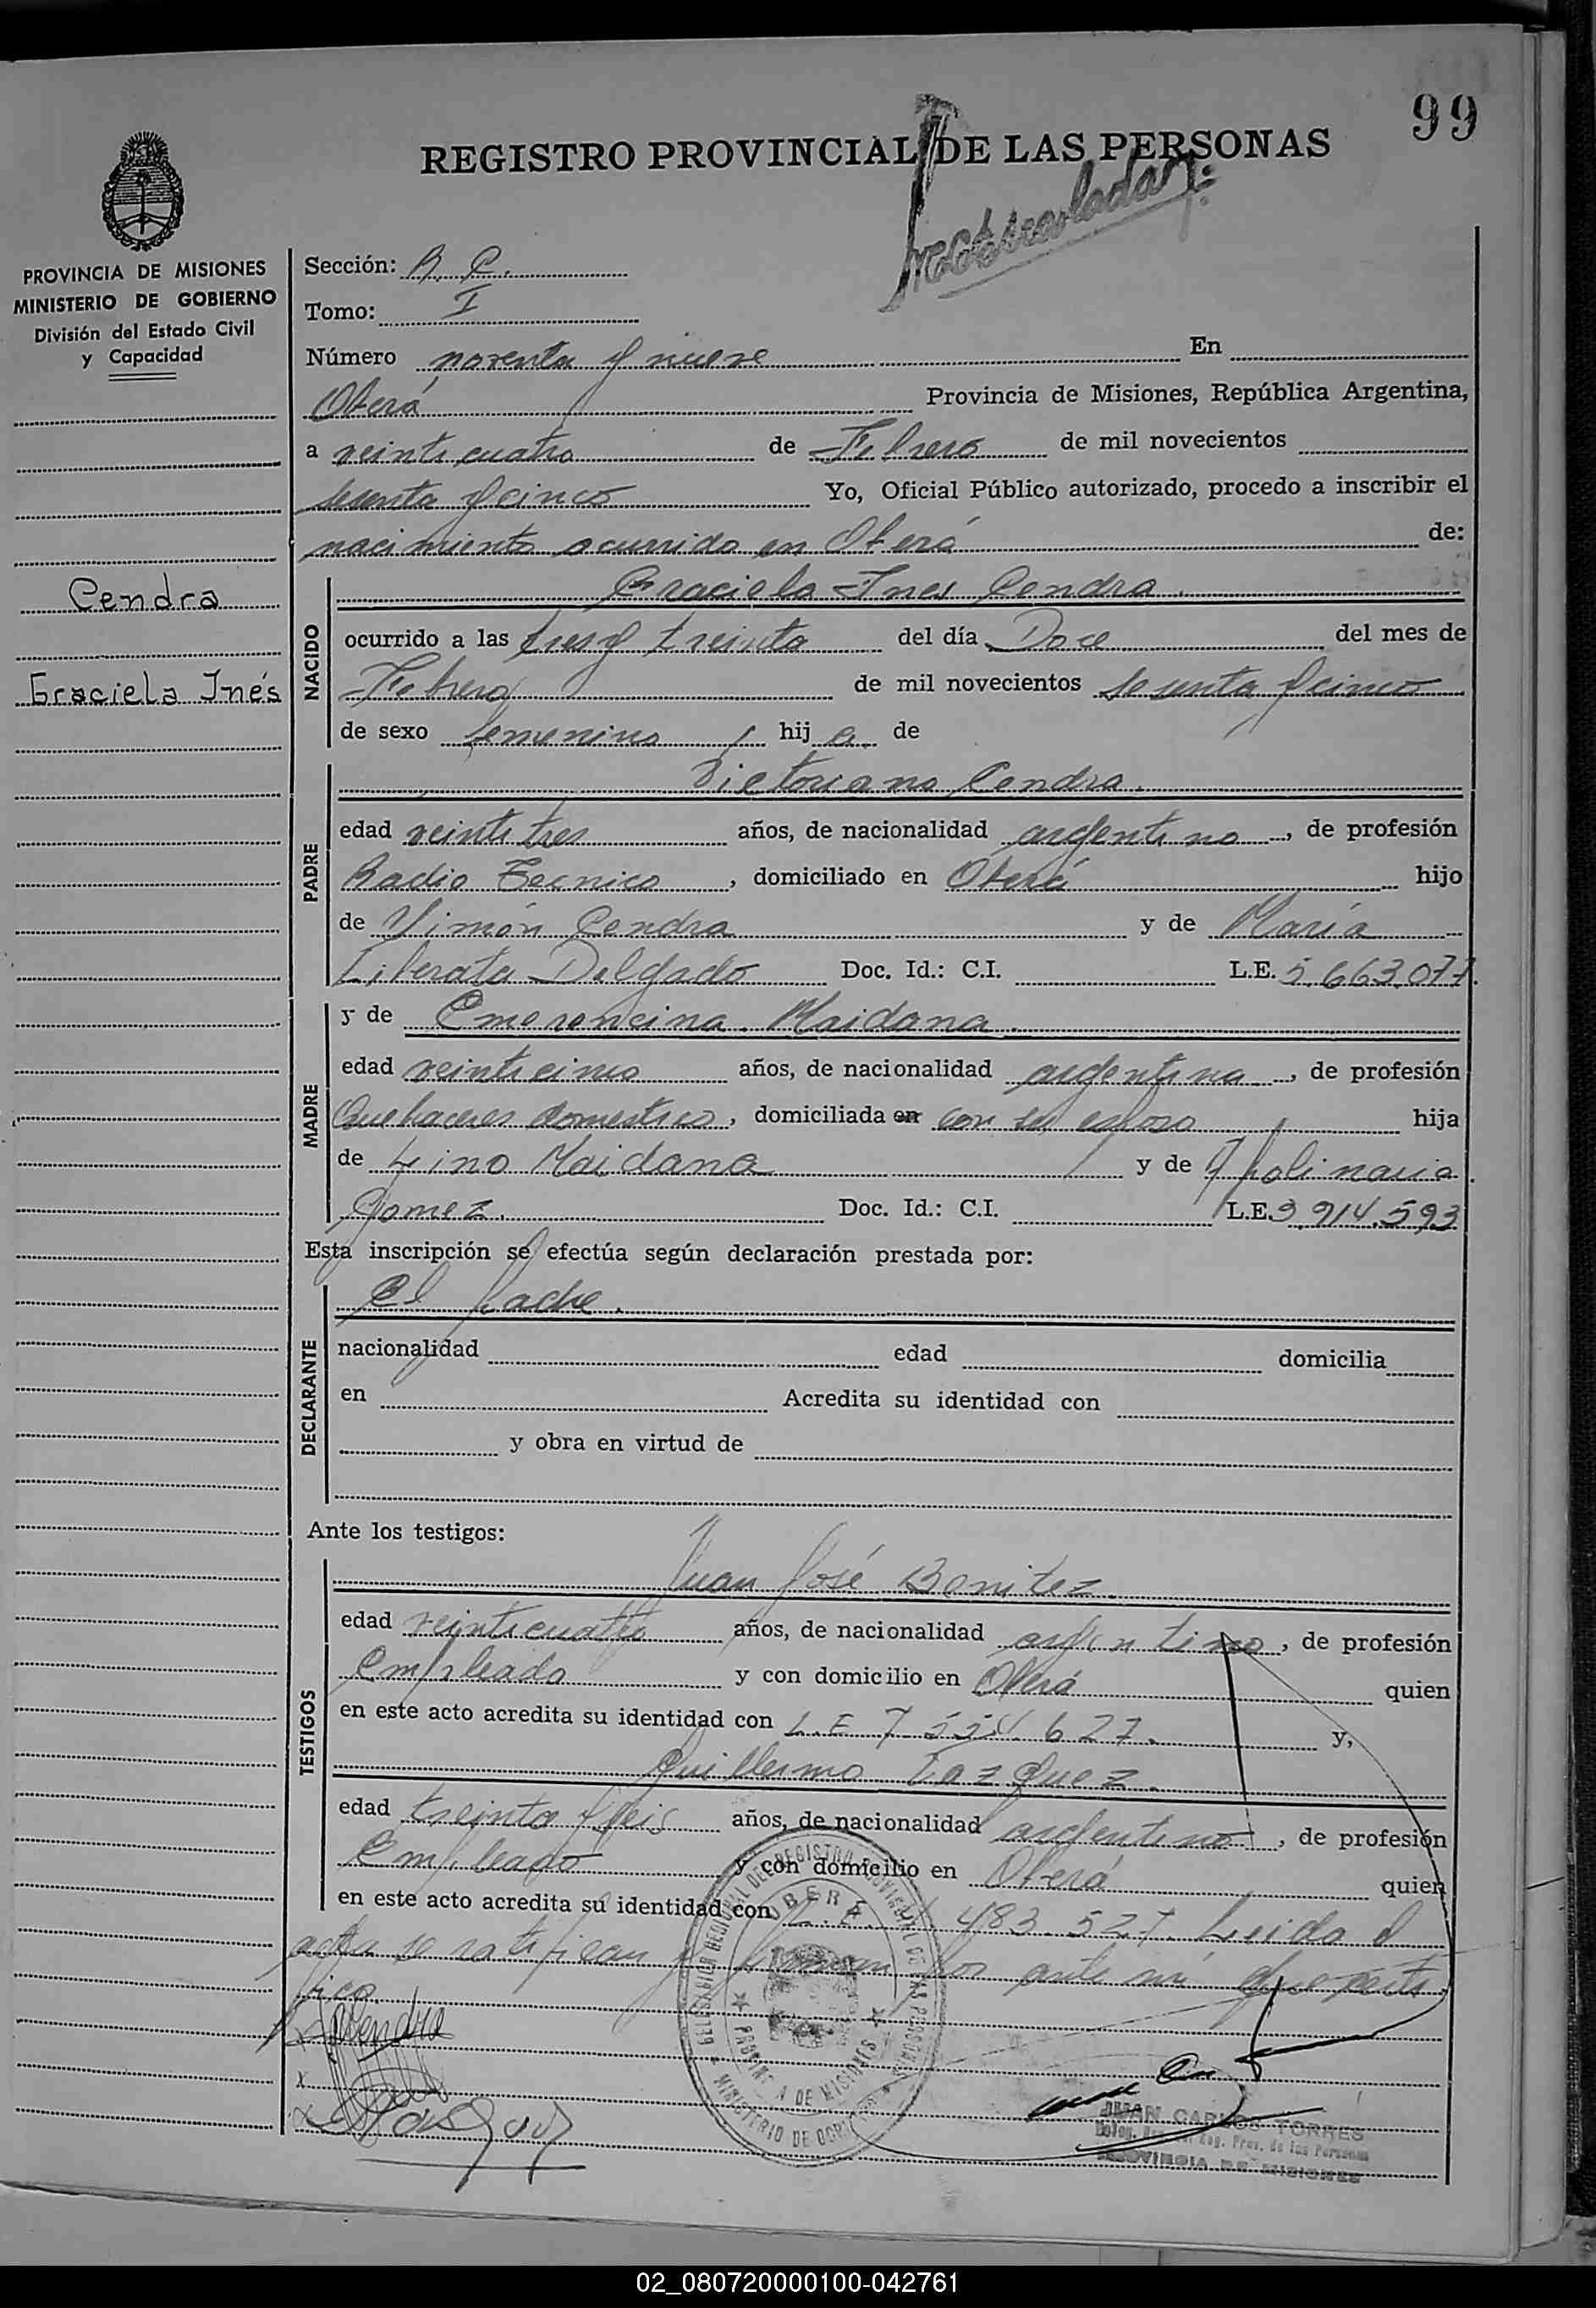 99
REGISTRO PROVINCIAL DE LAS PERSONAS
PROVINCIA DE MISIONES
MINISTERIO DE GOBIERNO
División del Estado Civil
y Capacidad
Cendra
Graciela Inés
Sección: R. C.
Tomo: I
Número noventa y nueve En
Oberá Provincia de Misiones, República Argentina,
a veinticuatro de Febrero de mil novecientos
sesenta y cinco Yo, Oficial Público autorizado, procedo a inscribir el
nacimiento ocurrido en Oberá de:
NACIDO
Graciela Ines Cendra.
ocurrido a las tres y treinta del día Doce del mes de
Febrero de mil novecientos sesenta y cinco
de sexo femenino, hij a de
PADRE
Victoriano Cendra.
edad veintitres años, de nacionalidad argentino, de profesión
Radio Tecnico, domiciliado en Oberá hijo
de Simón Cendra y de María
Liberata Delgado Doc. Id.: C.I. L.E. 5.663.077.
MADRE
y de Emerencina Maidana.
edad veinticinco años, de nacionalidad argentina, de profesión
Quehaceres domestico, domiciliada en con su esposo hija
de Lino Maidana y de Apolinaria
Gomez. Doc. Id.: C.I. L.E. 3.914.593
Esta inscripción se efectúa según declaración prestada por:
DECLARANTE
El padre.
nacionalidad edad domicilia
en Acredita su identidad con
y obra en virtud de
Ante los testigos:
TESTIGOS
Juan José Benitez
edad veinticuatro años, de nacionalidad argentino, de profesión
Empleado y con domicilio en Oberá quien
en este acto acredita su identidad con L.E 7.554.627. y,
Guillermo Vazquez.
edad treinta y seis años, de nacionalidad argentino, de profesión
Empleado y con domicilio en Oberá quien
en este acto acredita su identidad con L.E. 483.527. Leida el
acta se ratifican y firman por ante mí que certi
fico.
Cendra
DELEGACION REGIONAL DEL REGISTRO PROVINCIAL DE LAS PERSONAS
OBERA
PROVINCIA DE MISIONES
MINISTERIO DE GOBIERNO
JUAN CARLOS TORRES
Reg. Prov. de las Personas
PROVINCIA DE MISIONES
02_080720000100-042761